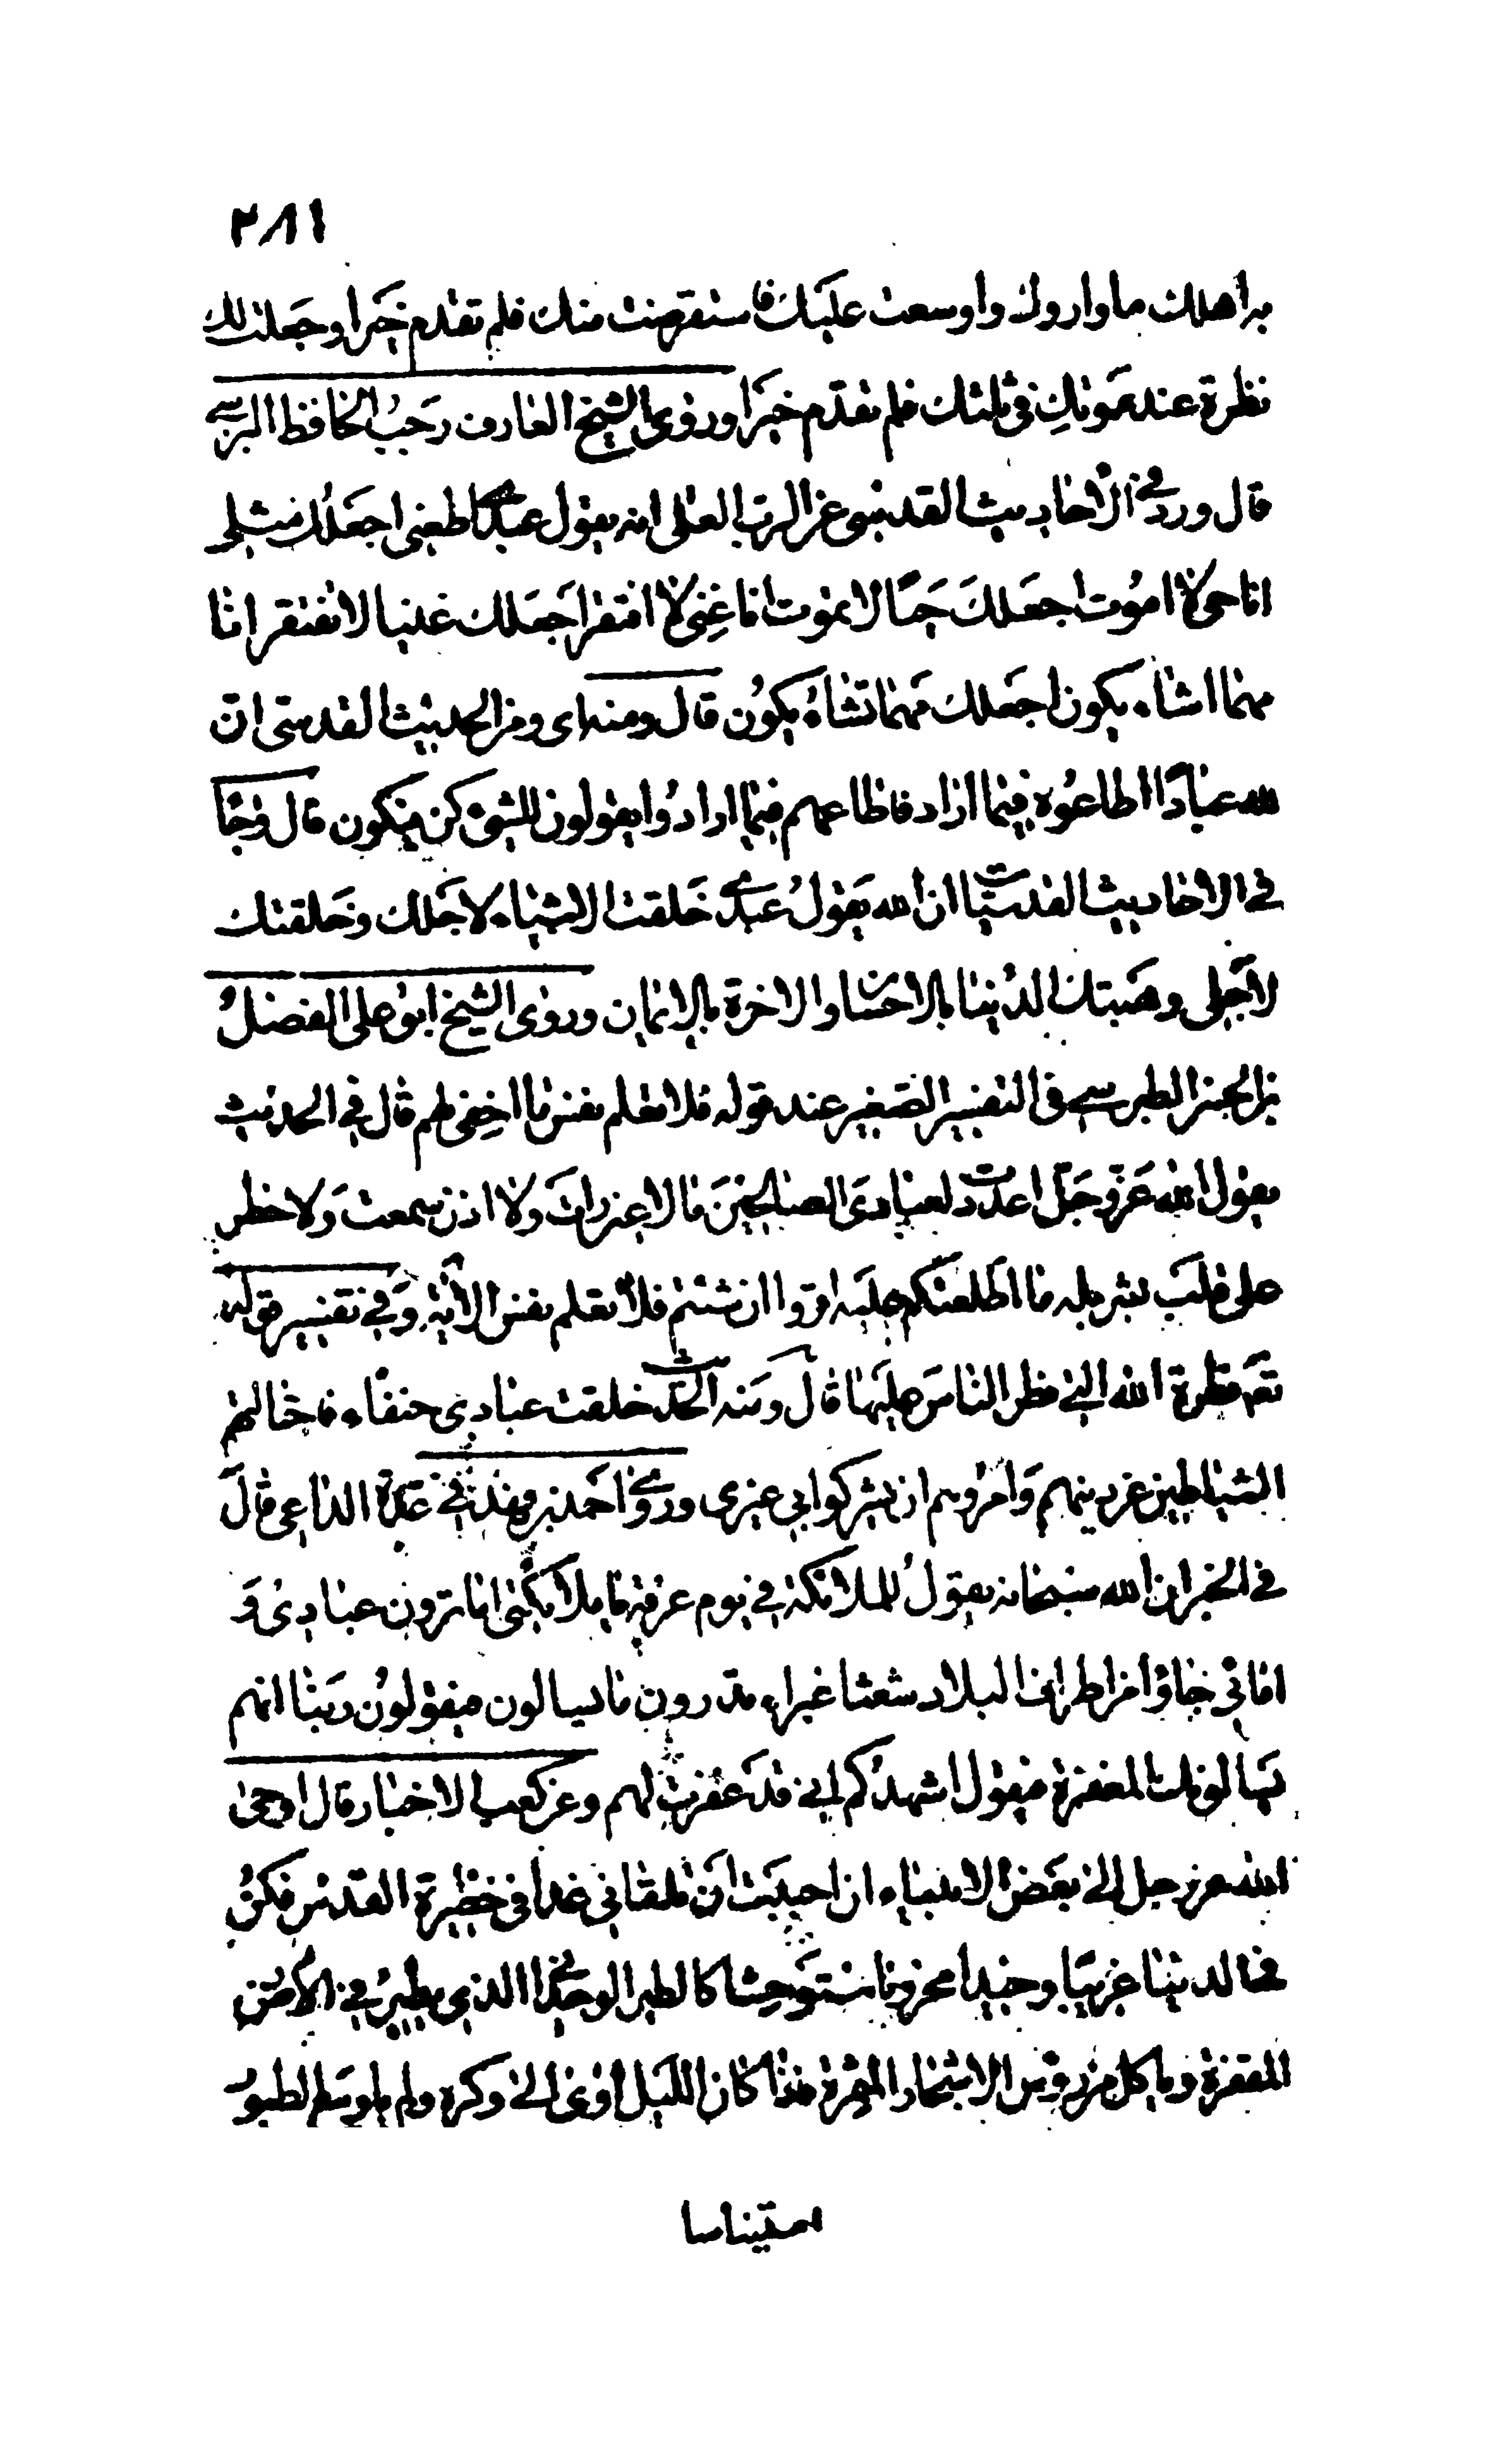 ٢٨١
به اهلك ما واروك واوسعت عليك فاستقرضت منك فلم تقدم خيرا وجعلت لك
نظرة عند موتك في ثلثك فلم تقدّم خيرًا وروى الشيخ العارف رجب الحافظ البرسي
قال ورد في الاحاديث القدسي عن الرب العلى انه يقول عبدي اطعني اجعلك مثلي
انا حي لا اموت اجعلك حيًا لا يموت انا غني لا افتقر اجعلك غنيا لا تفتقر انا
مهما اشاء يكون اجعلك مهما تشاء يكون قال ومنه اي ومن الحديث القدسي ان
لله عبادًا اطاعوه فيما اراد فاطاعهم فيما ارادوا يقولون للشئ كن فيكون قال وجاء
في الاحاديث القدسيات ان الله يقول عبدي خلقت الاشياء لاجلك وخلقتك
لاجلي وهبتك الدنيا بالاحسان والاخرة بالايمان وروى الشيخ ابو على الفضل
بن الحسن الطبرسي في التفسير الصغير عند قوله فلا تعلم نفس ما اخفي لهم قال في الحديث
يقول الله عزّ وجلّ اعددت لعبادي الصالحين ما لا عين رات ولا اذن سمعت ولا خطر
على قلب بشر بله ما اطلعتكم عليه اقروا ان شئتم فلا تعلم نفس الآية وفي تفسير قوله
تع فطرة الله التي فطر الناس عليها قال ومنه الحديث خلقت عبادي حنفاء فاحتالتهم
الشياطين عن دينهم وامروهم ان يشركوا بي غيري وروى احمد بن فهد في عدة الداعي قال
في الخبر ان الله سبحانه يقول للملائكة في يوم عرفة يا ملائكتي اما ترون عبادي و
امائي جاؤا من اطراف البلاد شعثا غبراء تدرون ما يسالون فيقولون ربنا انهم
يسالونك المغفرة فيقول اشهدكم اني قد غفرت لهم وعن كعب الاحبار قال اوحى
الله عز وجل الى بعض الانبياء ان احببت ان تلقاني غدا في حظيرة القدس فكن
في الدنيا غريبا وحيدا محزونا مستوحشا كالطير الوحداني الذي يطير في الارض
المقفرة وياكل من رؤس الاشجار المثمرة فاذا كان الليل اوى الى وكره ولم ياو مع الطيور
استيناسا